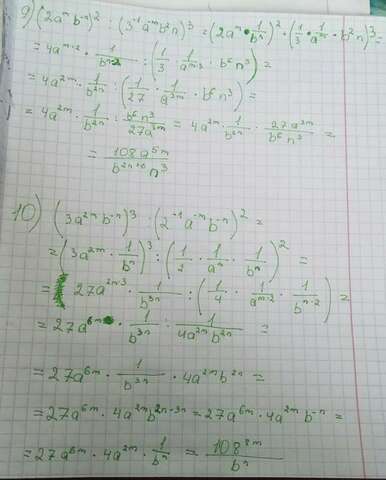 9) (2aᵐb⁻ⁿ)² : (3⁻¹a⁻ᵐb²n)³ = (2aᵐ · 1/bⁿ)² : (1/3 · 1/aᵐ · b²n)³ =
= 4aᵐ·² · 1/bⁿ·² : (1/3 · 1/aᵐ·³ · b⁶n³) =
= 4a²ᵐ · 1/b²ⁿ : (1/27 · 1/a³ᵐ · b⁶n³) =
= 4a²ᵐ · 1/b²ⁿ : b⁶n³/27a³ᵐ = 4a²ᵐ · 1/b²ⁿ · 27a³ᵐ/b⁶n³ =
= 108a⁵ᵐ/b²ⁿ⁺⁶n³
10) (3a²ᵐb⁻ⁿ)³ : (2⁻¹a⁻ᵐb⁻ⁿ)² =
= (3a²ᵐ · 1/bⁿ)³ : (1/2 · 1/aᵐ · 1/bⁿ)² =
= 27a²ᵐ·³ · 1/b³ⁿ : (1/4 · 1/aᵐ·² · 1/bⁿ·²) =
= 27a⁶ᵐ · 1/b³ⁿ : 1/4a²ᵐb²ⁿ =
= 27a⁶ᵐ · 1/b³ⁿ · 4a²ᵐb²ⁿ =
= 27a⁶ᵐ · 4a²ᵐb²ⁿ⁻³ⁿ = 27a⁶ᵐ · 4a²ᵐb⁻ⁿ =
= 27a⁶ᵐ · 4a²ᵐ · 1/bⁿ = 108⁸ᵐ/bⁿ